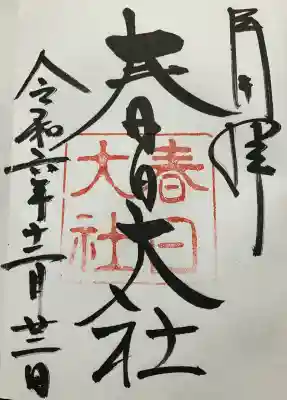 春日大社
春日
大社
令和六年十二月廿二日